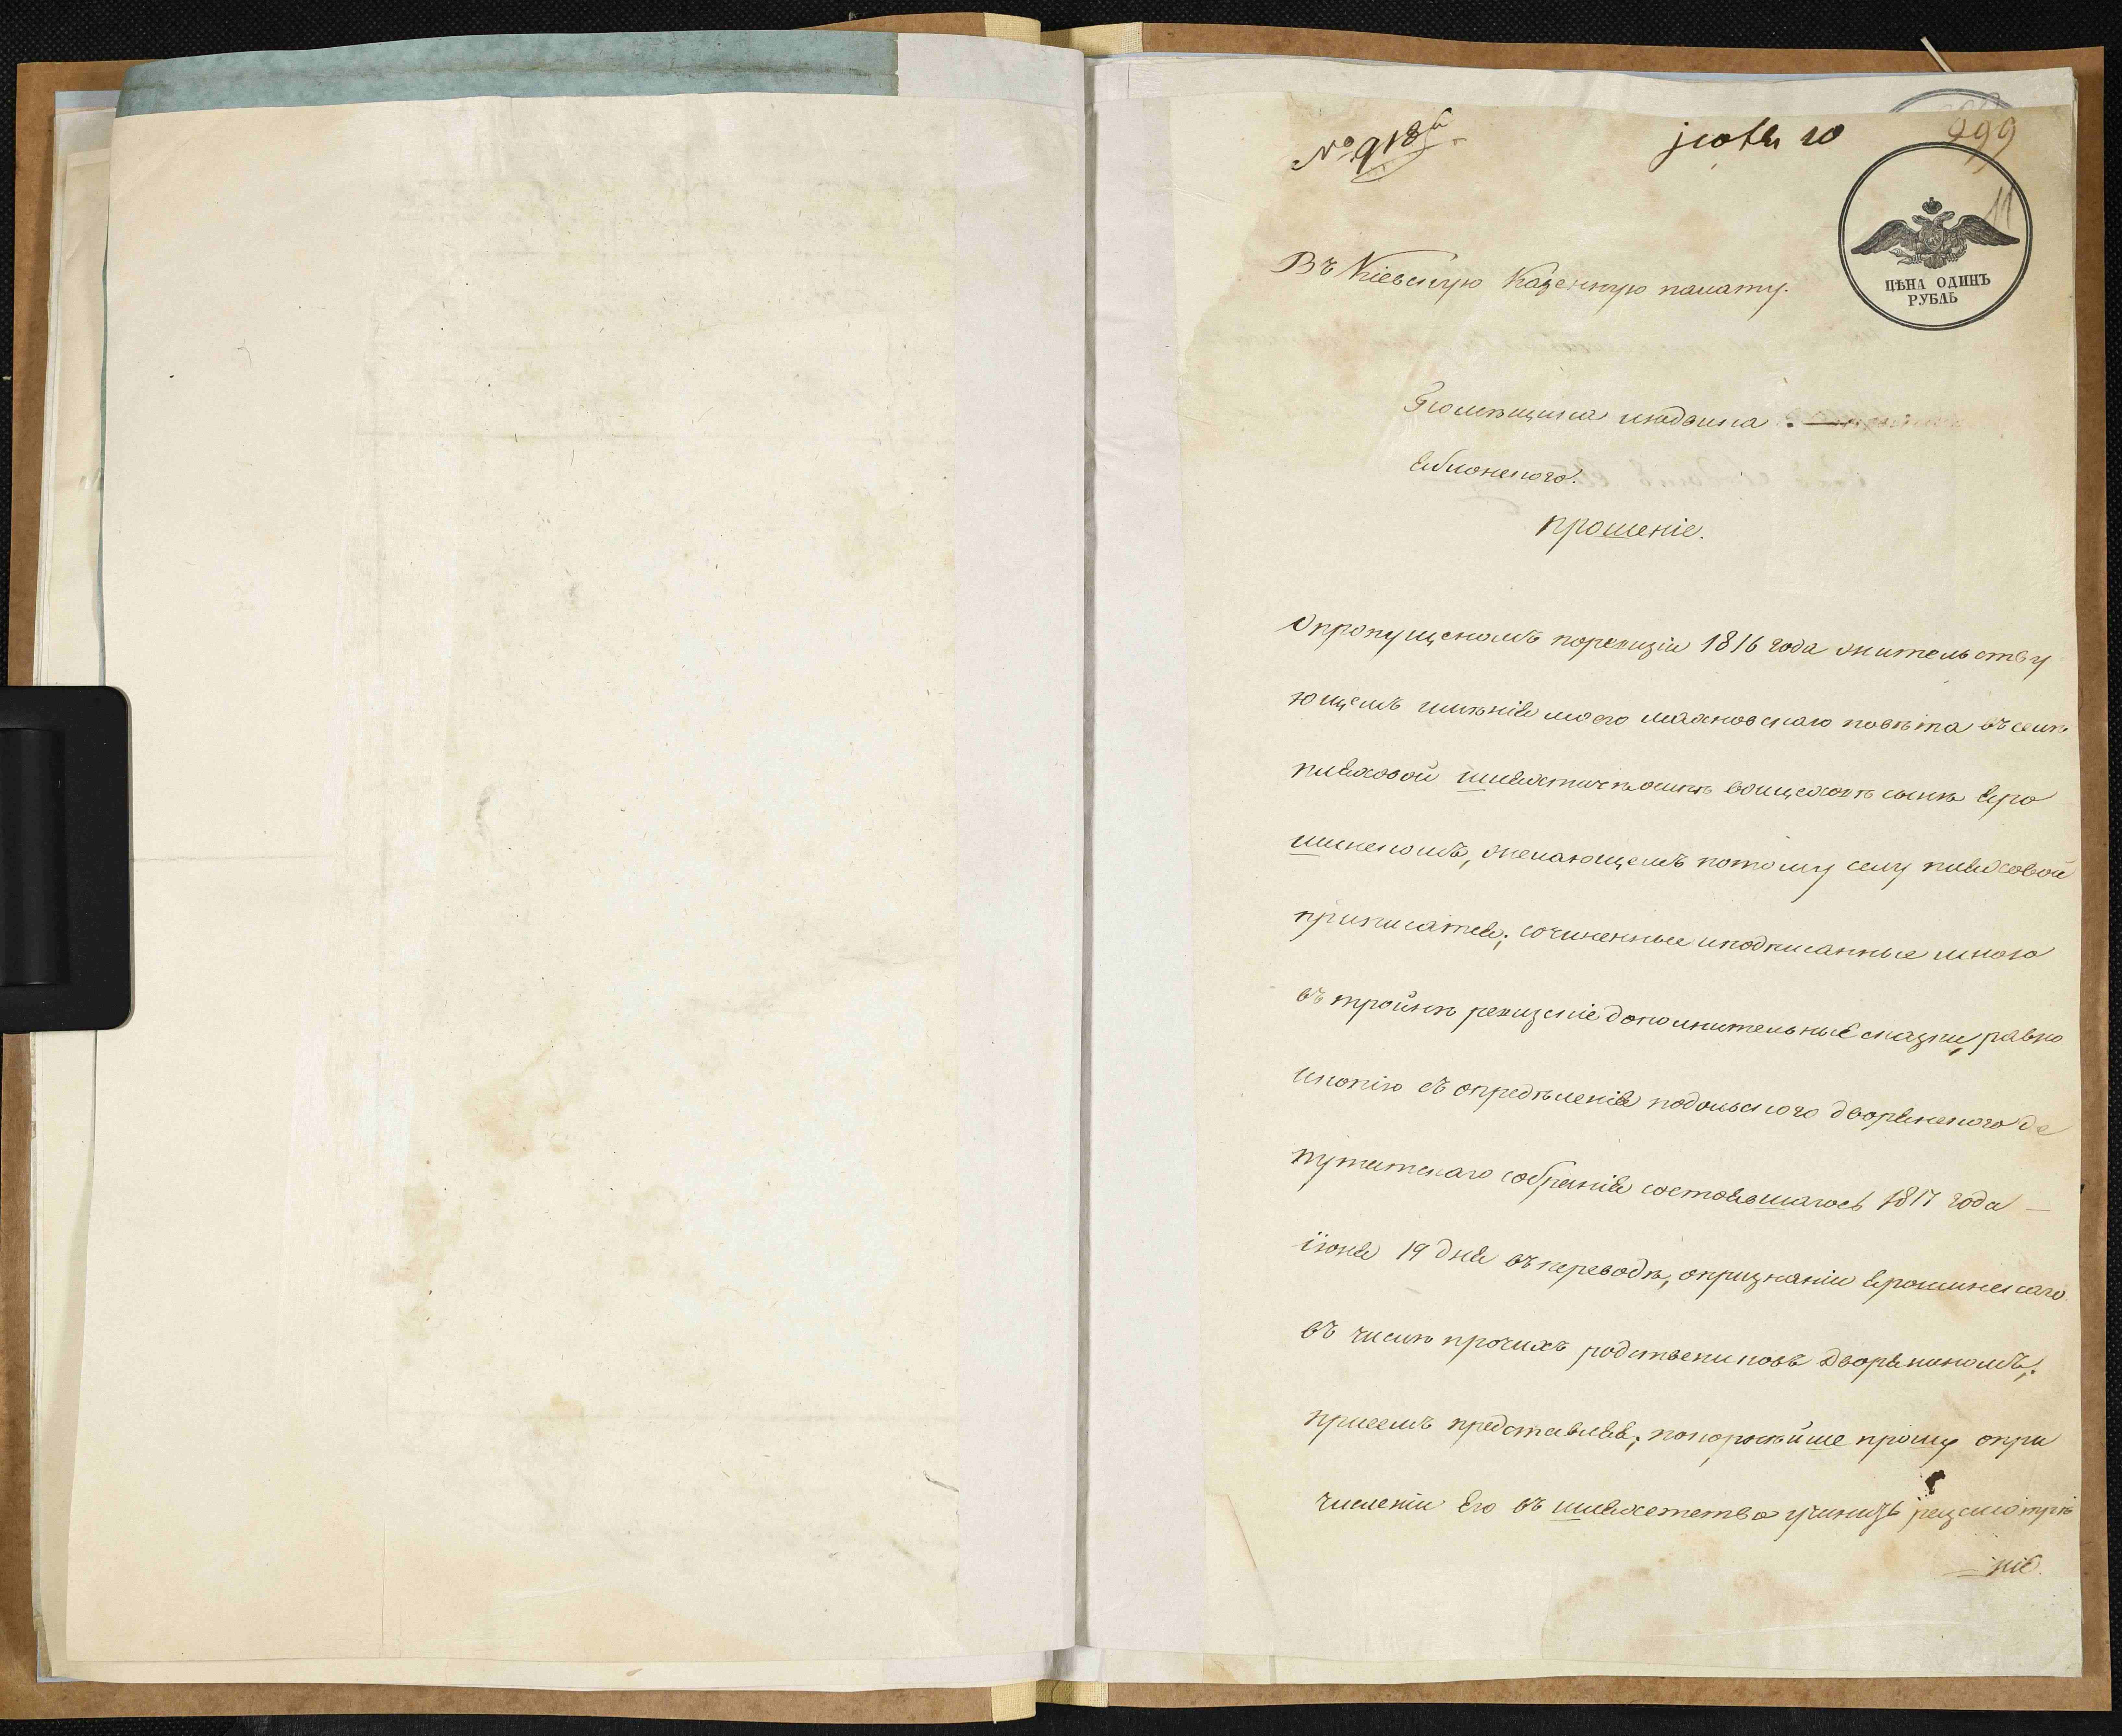 № 918й
299
11
ЦѢНА ОДИНЪ
РУБЛЬ
Въ Кіевскую Казенную палату.
Помѣщика людвика
Яблонского.
прошеніе.
Опропущеномъ поревизіи 1816 года жительству
ющемъ имѣнія моего махновскаго повѣта въ селѣ
пляховой шляхтичѣ осипѣ войцеховѣ сынѣ Яро
шинскомъ, желающемъ потому селу пляховой
приписатся; сочиненные иподписанные мною
въ тройнѣ ревизскіе дополнительные сказки, равно
икопію съ опредѣленія подольского дворянского де
путатскаго собранія состоявшагось 1817 года —
іюня 19 дня въ переводѣ, опризнаніи Ярошинскаго
въ числѣ прочихъ родственниковъ дворяниномъ;
присемъ представляя; покорнѣйше прошу опри
численіи Его въ шляхетство учинить разсмотрѣ
ніе.